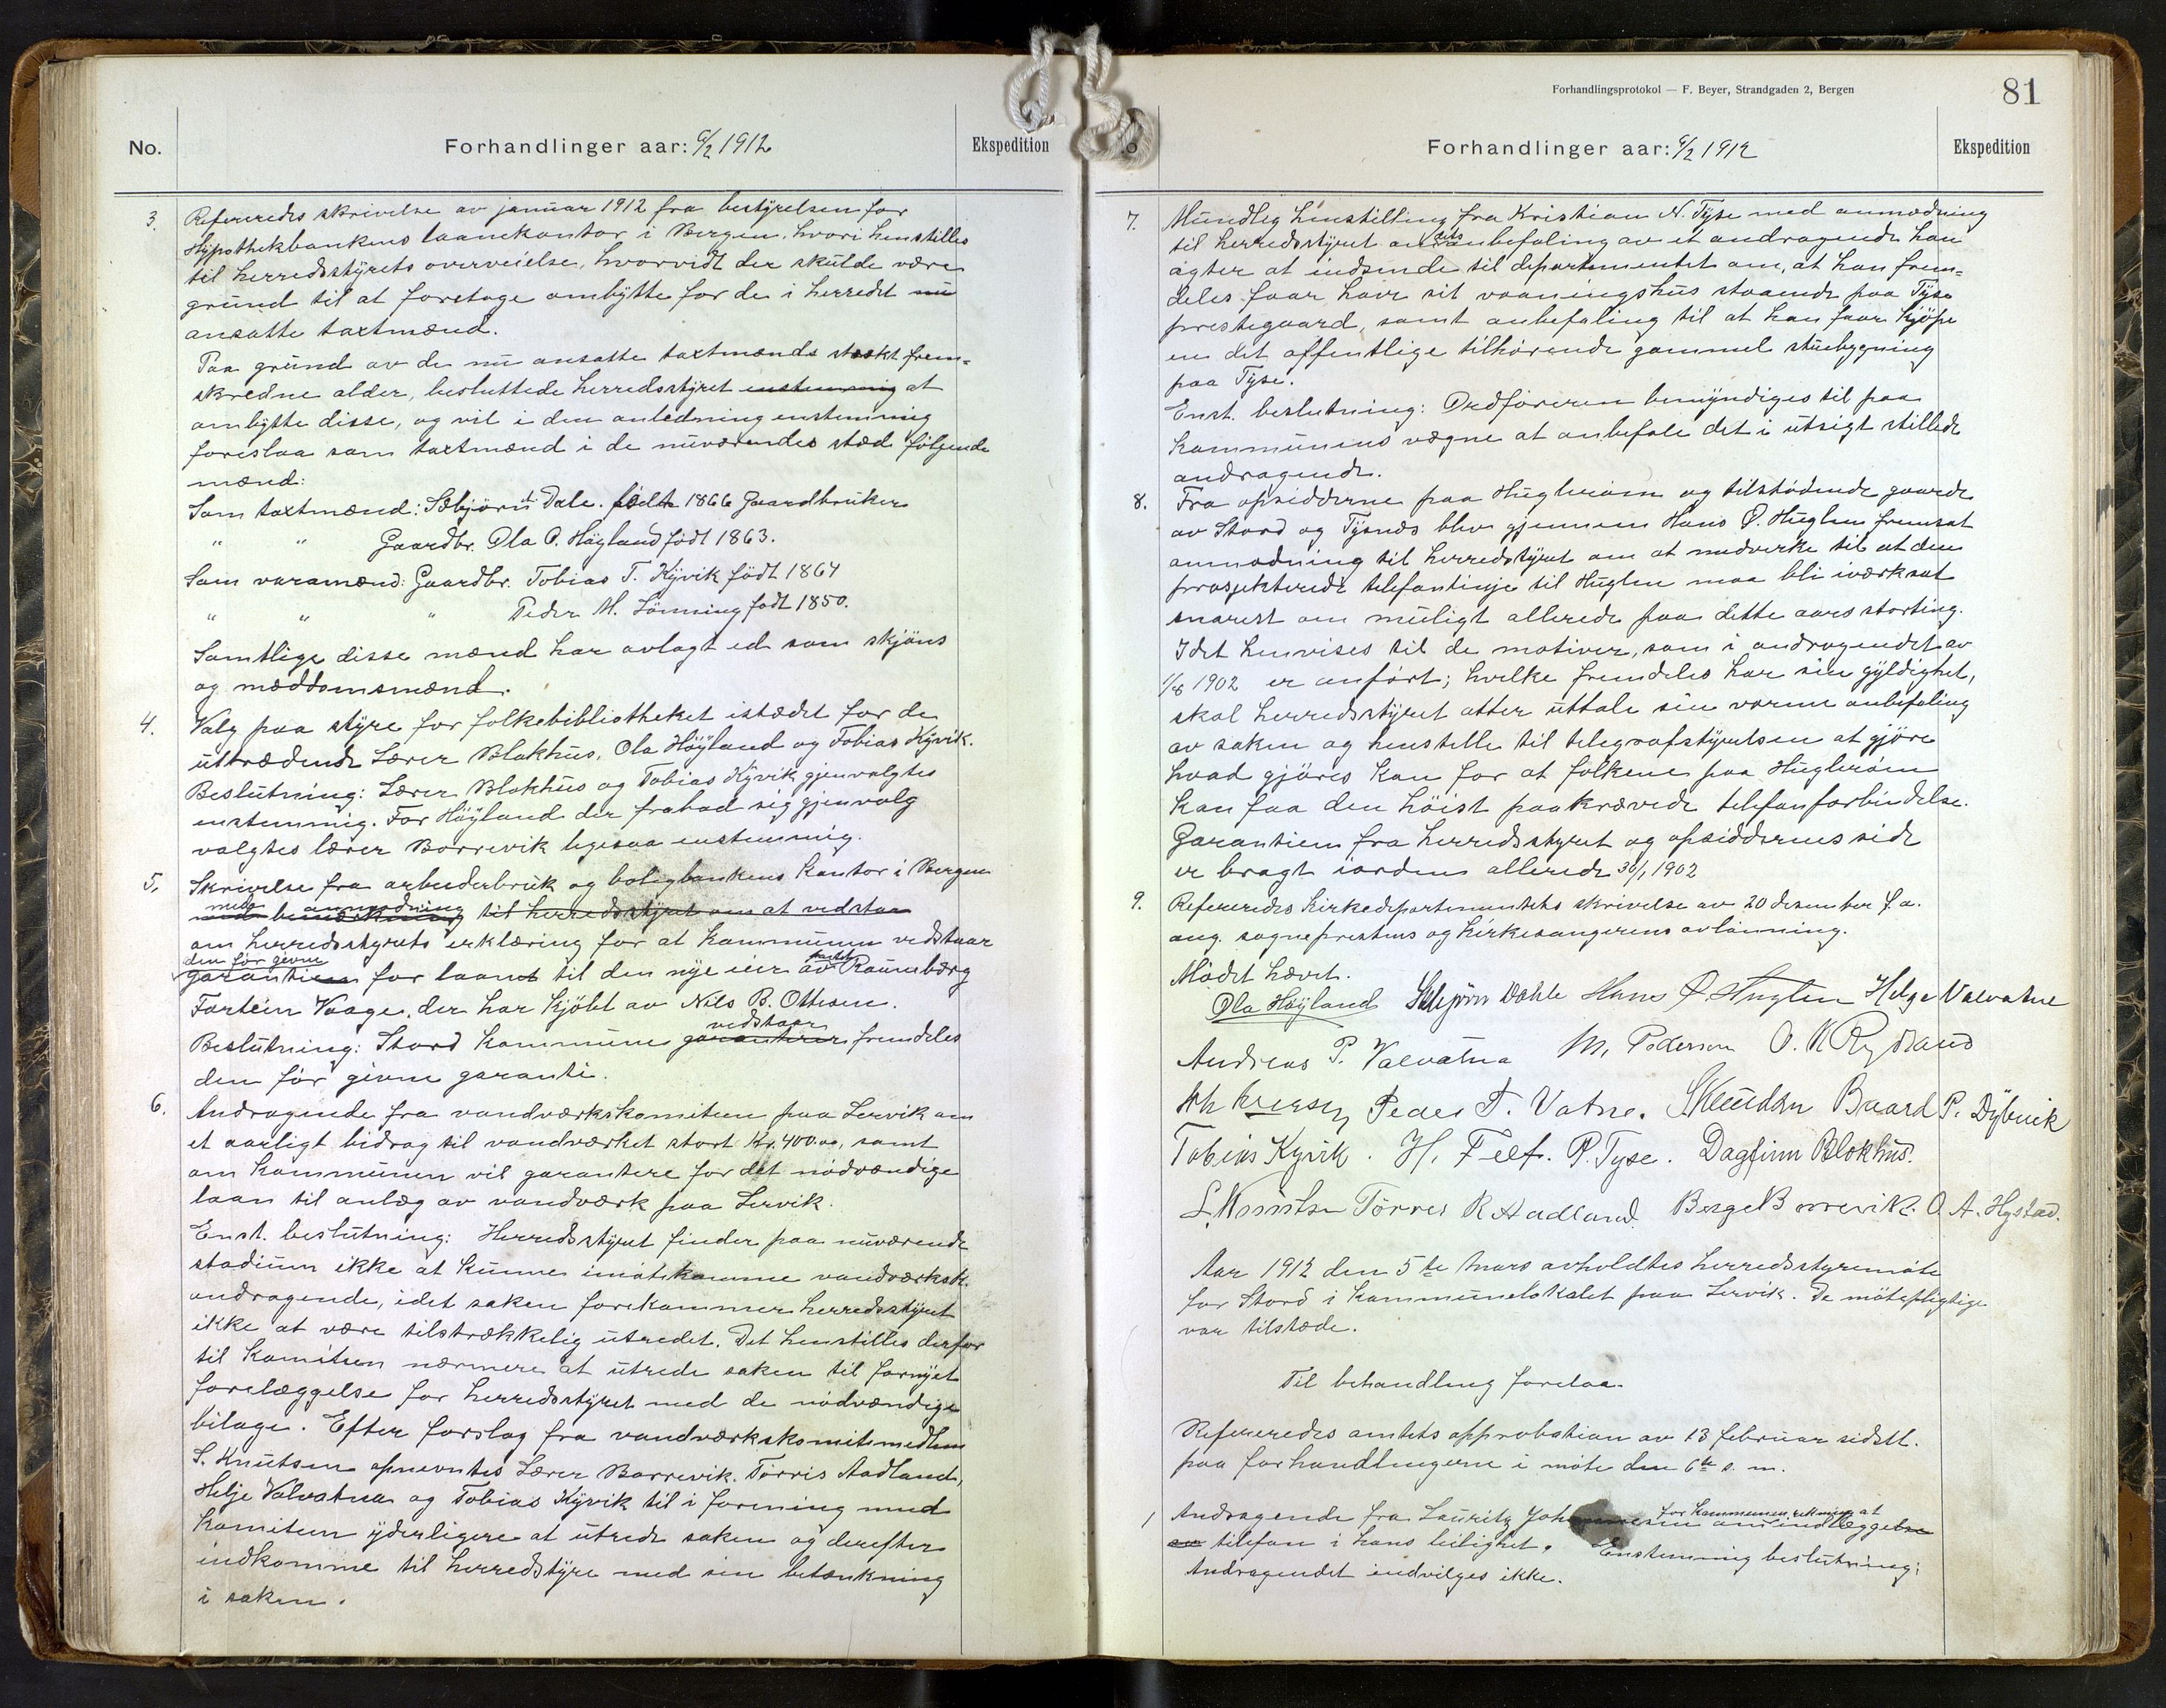 No.
Forhandlinger aar: 6/2 1912
Ekspedition
3. Refereredes skrivelse av januar 1912 fra bestyrelsen for
Hypothekbankens laanekontor i Bergen, hvori henstilles
til herredsstyrets overveielse, hvorvidt der skulde være
grund til at foretage ombytte for de i herredet nu
ansatte taxtmænd.
Paa grund av de nu ansatte taxtmænds stærkt frem=
skredne alder, besluttede herredsstyret enstemmig at
ombytte disse, og vil i den anledning enstemmig
foreslaa som taxtmænd i de nuværendes sted følgende
mænd:
Som taxtmænd: Sæbjörn Dale. født 1866 Gaardbruker
" " Gaardbr. Ola O. Höyland födt 1863.
Som varamænd: Gaardbr. Tobias T. Kyvik födt 1864
" " " Peder M. Lönning født 1850.
Samtlige disse mænd har avlagt ed som skjöns
og meddomsmænd.
4. Valg paa styre for folkebibliotheket istædet for de
uttrædende Lærer Blokhus, Ola Höyland og Tobias Kyvik.
Beslutning: Lærer Blokhus og Tobias Kyvik gjenvalgtes
enstemmig. For Höyland der frabad sig gjenvalg
valgtes lærer Borrevik ligesaa enstemmig.
5. Skrivelse fra arbeiderbruk og boligbankens kontor i Bergen
med anmodning
med bemærkning til herredsstyret om at vedstaa
om herredsstyrets erklæring for at kommunen vedstaar
den för givne
garantien for laanet til den nye eier av Raunsbærg
Tortein Vaage, der har kjöbt av Nils B. Ottesen.
vedstaar
Beslutning: Stord kommune garanterer fremdeles
den för givne garanti.
6. Andragende fra vandværkskomiteen paa Lervik om
et aarligt bidrag til vandværket stort Kr. 400.00, samt
om kommunen vil garantere for det nödvændige
laan til anlæg av vandværk paa Lervik.
Enst. beslutning: Herredsstyret finder paa nuværende
stadium ikke at kunne imötekomme vandværksk.
andragende, idet saken forekommer herredsstyret
ikke at være tilstrækkelig utredet. Det henstilles derfor
til komiteen nærmere at utrede saken til fornyet
forelæggelse for herredsstyret med de nödvendige
bilage. Efter forslag fra vandværkskomitemedlem
S. Knutsen opnevntes Lærer Borrevik. Törris Aadland,
Helje Valvatna og Tobias Kyvik til i forening med
komiteen yderligere at utrede saken og derefter
indkomme til herredsstyre med sin betænkning
i saken.
Forhandlingsprotokol — F. Beyer, Strandgaden 2, Bergen
81
Forhandlinger aar: 6/2 1912
Ekspedition
7. Mundtlig henstilling fra Kristian N. Tyse med anmodning
til herredsstyret om dets anbefaling av et andragende han
agter at indsende til departementet om, at han frem=
deles faar have sit vaaningshus staaende paa Tyse
prestegaard, samt anbefaling til at han faar kjöpe
en det offentlige tilhörende gammel stuebygning
paa Tyse.
Enst. beslutning: Ordföreren bemyndiges til paa
kommunens vægne at anbefale det i utsigt stillede
andragende.
8. Fra opsidderne paa Hugleröen og tilstödende gaarde
av Stord og Tysnes blev gjennem Hans Ø. Huglen fremsat
anmodning til herredsstyret om at medvirke til at den
prosjekterede telefonlinje til Huglen maa bli iværksat
snarest om muligt allerede paa dette aars storting.
Idet henvises til de motiver, som i andragendet av
1/8 1902 er anfört; hvilke fremdeles har sin gyldighet,
skal herredsstyret atter uttale sin varme anbefaling
av saken og henstille til telegrafstyrelsen at gjöre
hvad gjöres kan for at folkene paa Hugleröen
kan faa den höist paakrævede telefonforbindelse.
Garantien fra herredsstyret og opsiddernes side
er bragt iorden allerede 30/1 1902
9. Refereredes Kirkedepartementets skrivelse av 20 desember f. a.
ang. sogneprestens og kirkesangerens avlönning.
Mödet hævet.
Ola Höyland Sæbjørn Dahle Hans Ø. Huglen Helge Valvatne
Andreas P. Valvatna M. Pedersen O. K Rydland
Peder T. Vatne. Baard P. Dybvik
Tobias Kyvik. H. P. Tyse. Dagfinn Blokhus.
S. Knutsen Törres R Aadland Berge Borrevik. O. A. Hystad.
Aar 1912 den 5te mars avholdtes herredsstyremöte
for Stord i kommunelokalet paa Lervik. De mötepligtige
var tilstede.
Til behandling forelaa.
Refereredes amtets approbation av 13 februar sidstl.
paa forhandlingerne i möte den 6te s. m.
for kommunens rekning at
1 Andragende fra Lauritz Johannesen om indlæggelse
av telefon i hans leilighet. Enstemmig beslutning:
Andragendet indvilges ikke.